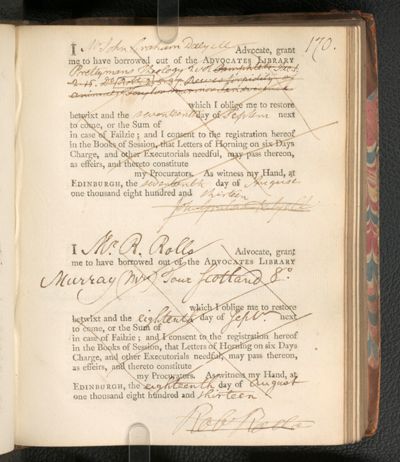 170.
I Mr John Graham Dalyell Advocate, grant
me to have borrowed out of the ADVOCATES LIBRARY
Prettymans Theology 2 vol
which I oblige me to restore
betwixt and the seventeenth day of Septem next
to come, or the Sum of
in case of Failzie; and I consent to the registration hereof
in the Books of Session, that Letters of Horning on six Days
Charge, and other Executorials needful, may pass thereon,
as effeirs, and thereto constitute
my Procurators. As witness my Hand, at
EDINBURGH, the seventeenth day of August
one thousand eight hundred and thirteen
I Mr. R. Rollo Advocate, grant
me to have borrowed out of the ADVOCATES LIBRARY
Murray Mrs Tour Scotland 8o
which I oblige me to restore
betwixt and the eighteenth day of Septr. next
to come, or the Sum of
in case of Failzie; and I consent to the registration hereof
in the Books of Session, that Letters of Horning on six Days
Charge, and other Executorials needful, may pass thereon,
as effeirs, and thereto constitute
my Procurators. As witness my Hand, at
EDINBURGH, the eighteenth day of August
one thousand eight hundred and thirteen
Robt Rollo